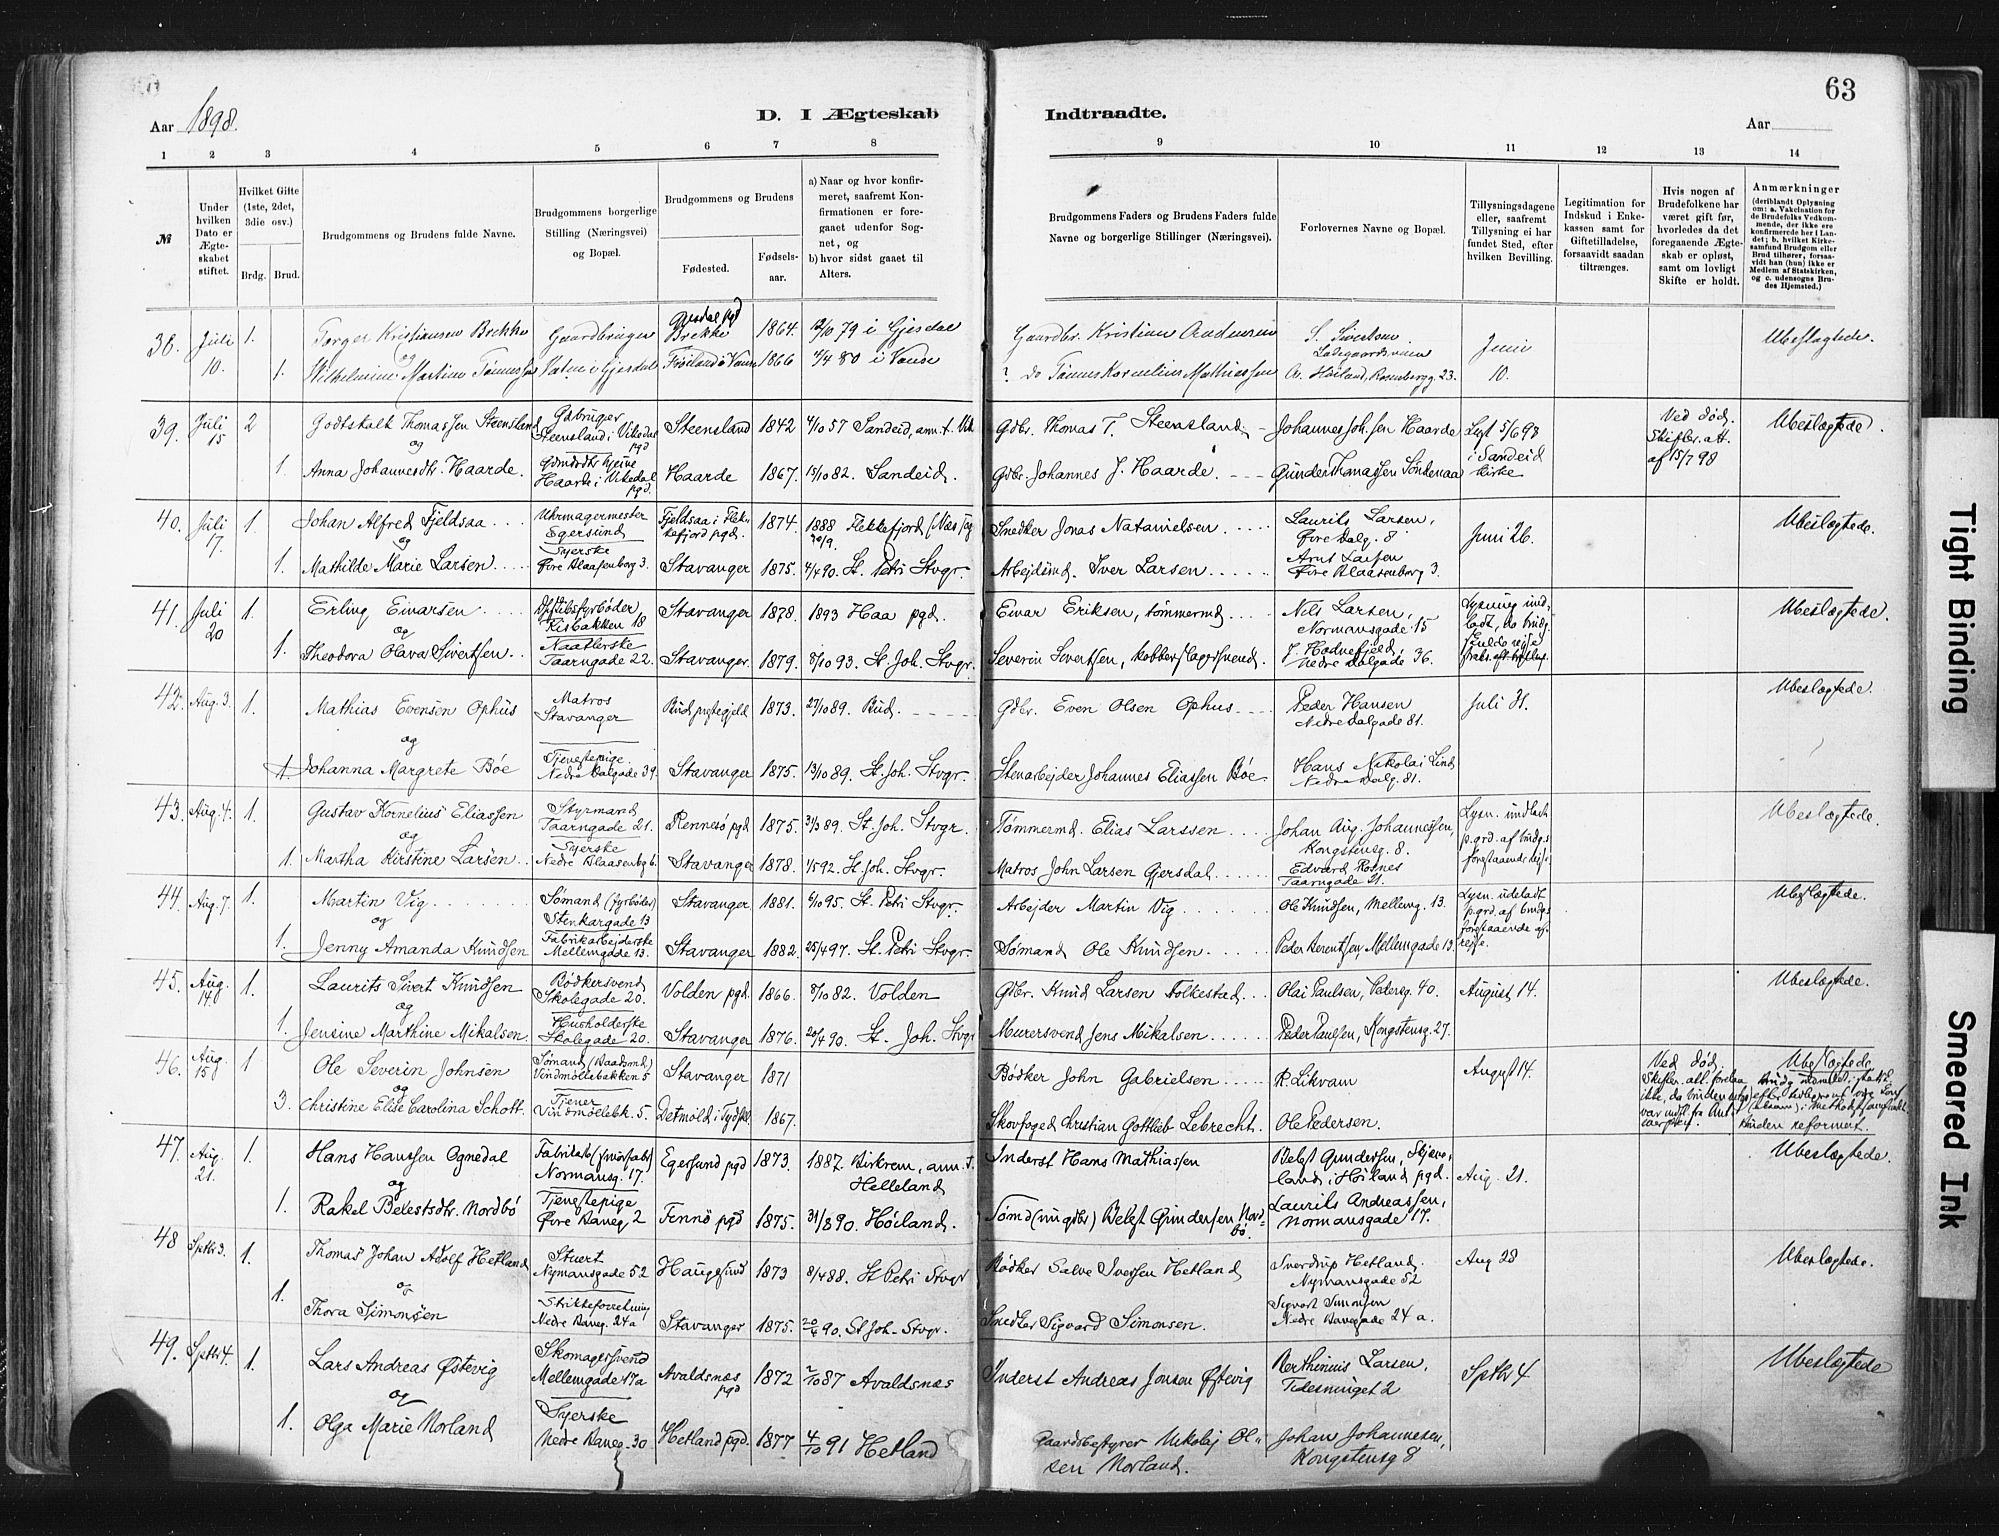 63
Aar 1898.
D. I Ægteskab Indtraadte.
Aar
1 2 3 4 5 6 7 8 9 10 11 12 13 14
№
Under hvilken Dato er Ægteskabet stiftet.
Hvilket Gifte (1ste, 2det, 3die osv.)
Brdg. Brud.
Brudgommens og Brudens fulde Navne.
Brudgommens borgerlige Stilling (Næringsvei) og Bopæl.
Brudgommens og Brudens
Fødested.
Fødselsaar.
a) Naar og hvor konfirmeret, saafremt Konfirmationen er foregaaet udenfor Sognet, og
b) hvor sidst gaaet til Alters.
Brudgommens Faders og Brudens Faders fulde Navne og borgerlige Stillinger (Næringsvei).
Forlovernes Navne og Bopæl.
Tillysningsdagene eller, saafremt Tillysning ei har fundet Sted, efter hvilken Bevilling.
Legitimation for Indskud i Enkekassen samt for Giftetilladelse, forsaavidt saadan tiltrænges.
Hvis nogen af Brudefolkene har været gift før, hvorledes da det foregaaende Ægteskab er opløst, samt om lovligt Skifte er holdt.
Anmærkninger
(deriblandt Oplysning om: a. Vakcination for de Brudefolks Vedkommende, der ikke ere konfirmerede her i Landet; b. hvilket Kirkesamfund Brudgom eller Brud tilhører, forsaavidt han (hun) ikke er Medlem af Statskirken, og c. udensogns Brudes Hjemsted.)
38. Juli 10. 1. Torger Kristiansen Brekke Gaardbruger Gjesdal pgd Brekke 1864. 12/10 79 i Gjesdal Gaardbr. Kristian Audensen S. Sivertsen Ladegaardsveien Juni 10. Ubeslægtede.
og
1. Wilhelmine Martine Tønnessen i Gjesdal Frøiland i Vanse 1866 4/4 80 i Vanse ? do Tønnes Kornelius Mathiassen Høiland, Rosenbergg. 23.
39. Juli 15 2 Godtskalk Thomassen Steensland Gdbruger Steensland i Vikedal pgd Steensland 1842 4/10 57 Sandeid, ann. t. Vik Gdbr. Thomas T. Steensland Johannes Joh.sen Haarde Lyst 5/6 98 i Sandeid kirke Ved død. Skiftebr. att. af 15/7 98 Ubeslægtede.
og
1. Anna Johannesdtr. Haarde. Haarde i Vikedal pgd. Haarde 1867. 15/10 82. Sandeid. Gdbr. Johannes J. Haarde. Gunder Thomassen Søndenaa
40. Juli 17. 1. Johan Alfred Fjeldsaa Uhrmagermester Egersund Fjeldsaa i Flekkefjord pgd. 1874. 1888 20/9. Flekkefjord (Næs sog Snedker Jonas Natanielsen Laurits Larsen, Øvre Dalg. 8 Juni 26. Ubeslægtede.
og
1. Mathilde Marie Larsen Syerske Øvre Blaasenborg 3. Stavanger 1875. 4/4 90. St. Petri Stvgr. Arbeidsmd. Iver Larsen Arnt Larsen Øvre Blaasenborg 3.
41. Juli 20 1. Erling Einarsen Dpskibsfyrbøder, Risbakken 18 Stavanger 1878. 1893 Haa pgd. Einar Eriksen, tømmermd. Nils Larsen, Normansgade 15 Lysning indladt, da brudg. skulde reise Ubeslægtede.
og
1. Theodora Olava Sivertsen Naatlerske Taarngade 22. Stavanger. 1879. 8/10 93. St. Joh. Stvgr. Severin Sivertsen, kobberslagersvend. J. Hodnefjeld, Nedre Dalgade 36.
42. Aug. 3. 1. Mathias Evensen Ophus Matros Stavanger Bud prestegjeld 1873. 27/10 89. Bud. Gdbr. Even Olsen Ophus Peder Hansen Nedre Dalgade 81. Juli 31. Ubeslægtede.
og
1. Johanna Margrete Bøe Tjenestepige Nedre Dalgade 39. Stavanger 1875. 13/10 89. St. Joh. Stvgr. Stenarbejder Johannes Eliassen Bøe Hans Nikolai Lind Nedre Dalg. 81.
43. Aug. 4. 1. Gustav Kornelius Eliassen Styrmand Taarngade 21. Rennesø pgd 1875. 31/3 89. St. Joh. Stvgr. Tømmermd. Elias Larssen Johan Aug. Johannessen, Kongstensg. 8. Lysn. indladt p.grd. af brudg.s forestaaende reise Ubeslægtede.
og
1. Martha Kirstine Larsen Syerske Nedre Blaasenbg 6. Stavanger 1878. 1/5 92. St. Joh. Stvgr. Matros John Larsen Gjersdal Edvard Rosnes Taarngade 21.
44. Aug. 7. 1. Martin Vig Sømand (fyrbøder) Stenkargade 13 Stavanger 1881. 6/10 95. St. Petri Stvgr. Arbejder Martin Vig Ole Knudsen, Mellemg. 13. Lysn. udeladt p.grd. af brudg.s forestaaende afrejse. Ubeslægtede.
og
1. Jenny Amanda Knudsen Fabrikarbejderske Mellemgade 13. Stavanger 1882. 25/4 97. St. Petri Stvgr. Sømand Ole Knudsen Peder Berentsen, Mellemgade 13.
45. Aug. 14. 1. Laurits Sivert Knudsen Bødkersvend Skolegade 20. Volden pgd. 1866. 8/10 82. Volden Gdbr. Knud Larsen Folkestad Olai Paulsen, Pedersg. 40. August 14. Ubeslægtede.
og
1. Jensine Marthine Mikalsen. Husholderske Skolegade 20. Stavanger 1876. 20/4 90. St. Joh. Stvgr Murersvend Jens Mikalsen Peder Paulsen, Kongstensg. 27.
46. Aug. 15 1 Ole Severin Johnsen Sømand (Baadsmd) Vindmøllebakken 5 Stavanger 1871 Bødker John Gabrielsen R. Likvam August 14. Ved død. Skiftebr. att. forelaa ikke, da bruden Ubeslægtede
og
3. Christine Elise Carolina Schott. Tjener Vindmøllebk. 5. Detmold i Tydskl. 1867. Skovfoged Christian Gottlieb Lebrecht. Ole Pedersen. Bruden reformert.
47. Aug. 21. 1. Hans Hanssen Ognedal Normansg. 17. Egersund pgd 1873. 1887. Birkrem, ann. t. Helleland Inderst Hans Mathiassen Belest Gundersen, Skjæveland i Høiland pgd. Aug. 21. Ubeslægtede.
og
1. Rakel Belestsdtr. Nordbø Tjenestepige Øvre Baneg. 2 Finnø pgd 1875. 31/8 90. Høiland. Tømd (nu gdbr) Belest Gundersen Nordbø. Laurits Andreassen, Normansgade 17.
48 Septbr 3. 1. Thomas Johan Adolf Hetland Stuert Nymansgade 52 Haugesund 1873 8/4 88. St Petri Stvgr Bødker Salve Iversen Hetland Sverdrup Hetland. Nymansgade 52 Aug 28 Ubeslægtede.
og
1. Thora Simonsen Strikkeforretning Nedre Baneg. 24a Stavanger 1875. 20/4 90. St Joh. Stvgr. Snedker Sigvard Simonsen. Sigvart Simonsen Nedre Banegade 24 a.
49. Septbr 4. 1. Lars Andreas Østevig Skomagersvend Mellemgade 17a Avaldsnæs pgd 1872 2/10 87 Avaldsnæs Inderst Andreas Jonsen Østevig Berthinius Larsen, Tidesminget 2 Septbr 4 Ubeslægtede
og
1. Olga Marie Norland Syerske Nedre Baneg. 30 Hetland pgd. 1877 4/10 91 Hetland Gaardsbestyrer Nikolaj Olsen Norland. Johan Johannesen, Kongstensg 8
Tight Binding
Smeared Ink